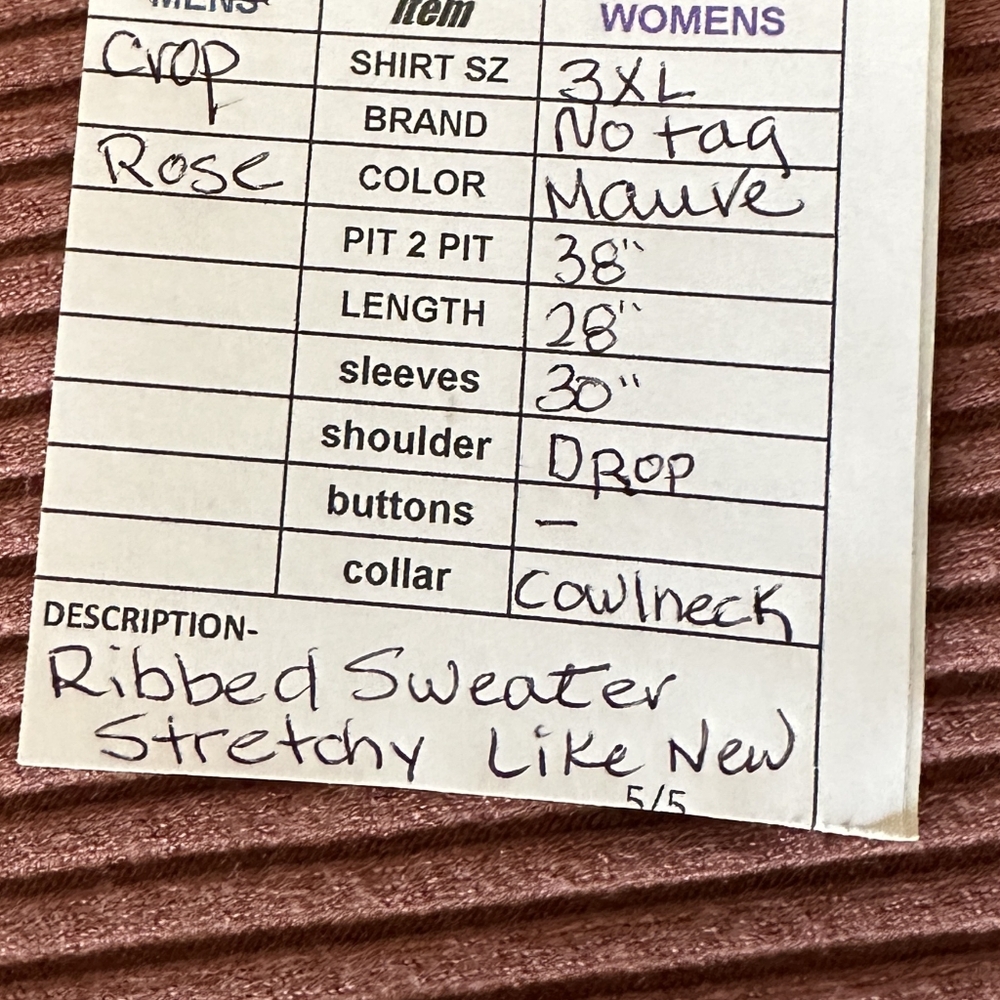 MENS Item WOMENS
Crop SHIRT SZ 3XL
BRAND No tag
Rose COLOR Mauve
PIT 2 PIT 38"
LENGTH 28"
sleeves 30"
shoulder DROP
buttons —
collar Cowlneck
DESCRIPTION-
Ribbed Sweater
Stretchy Like New
5/5